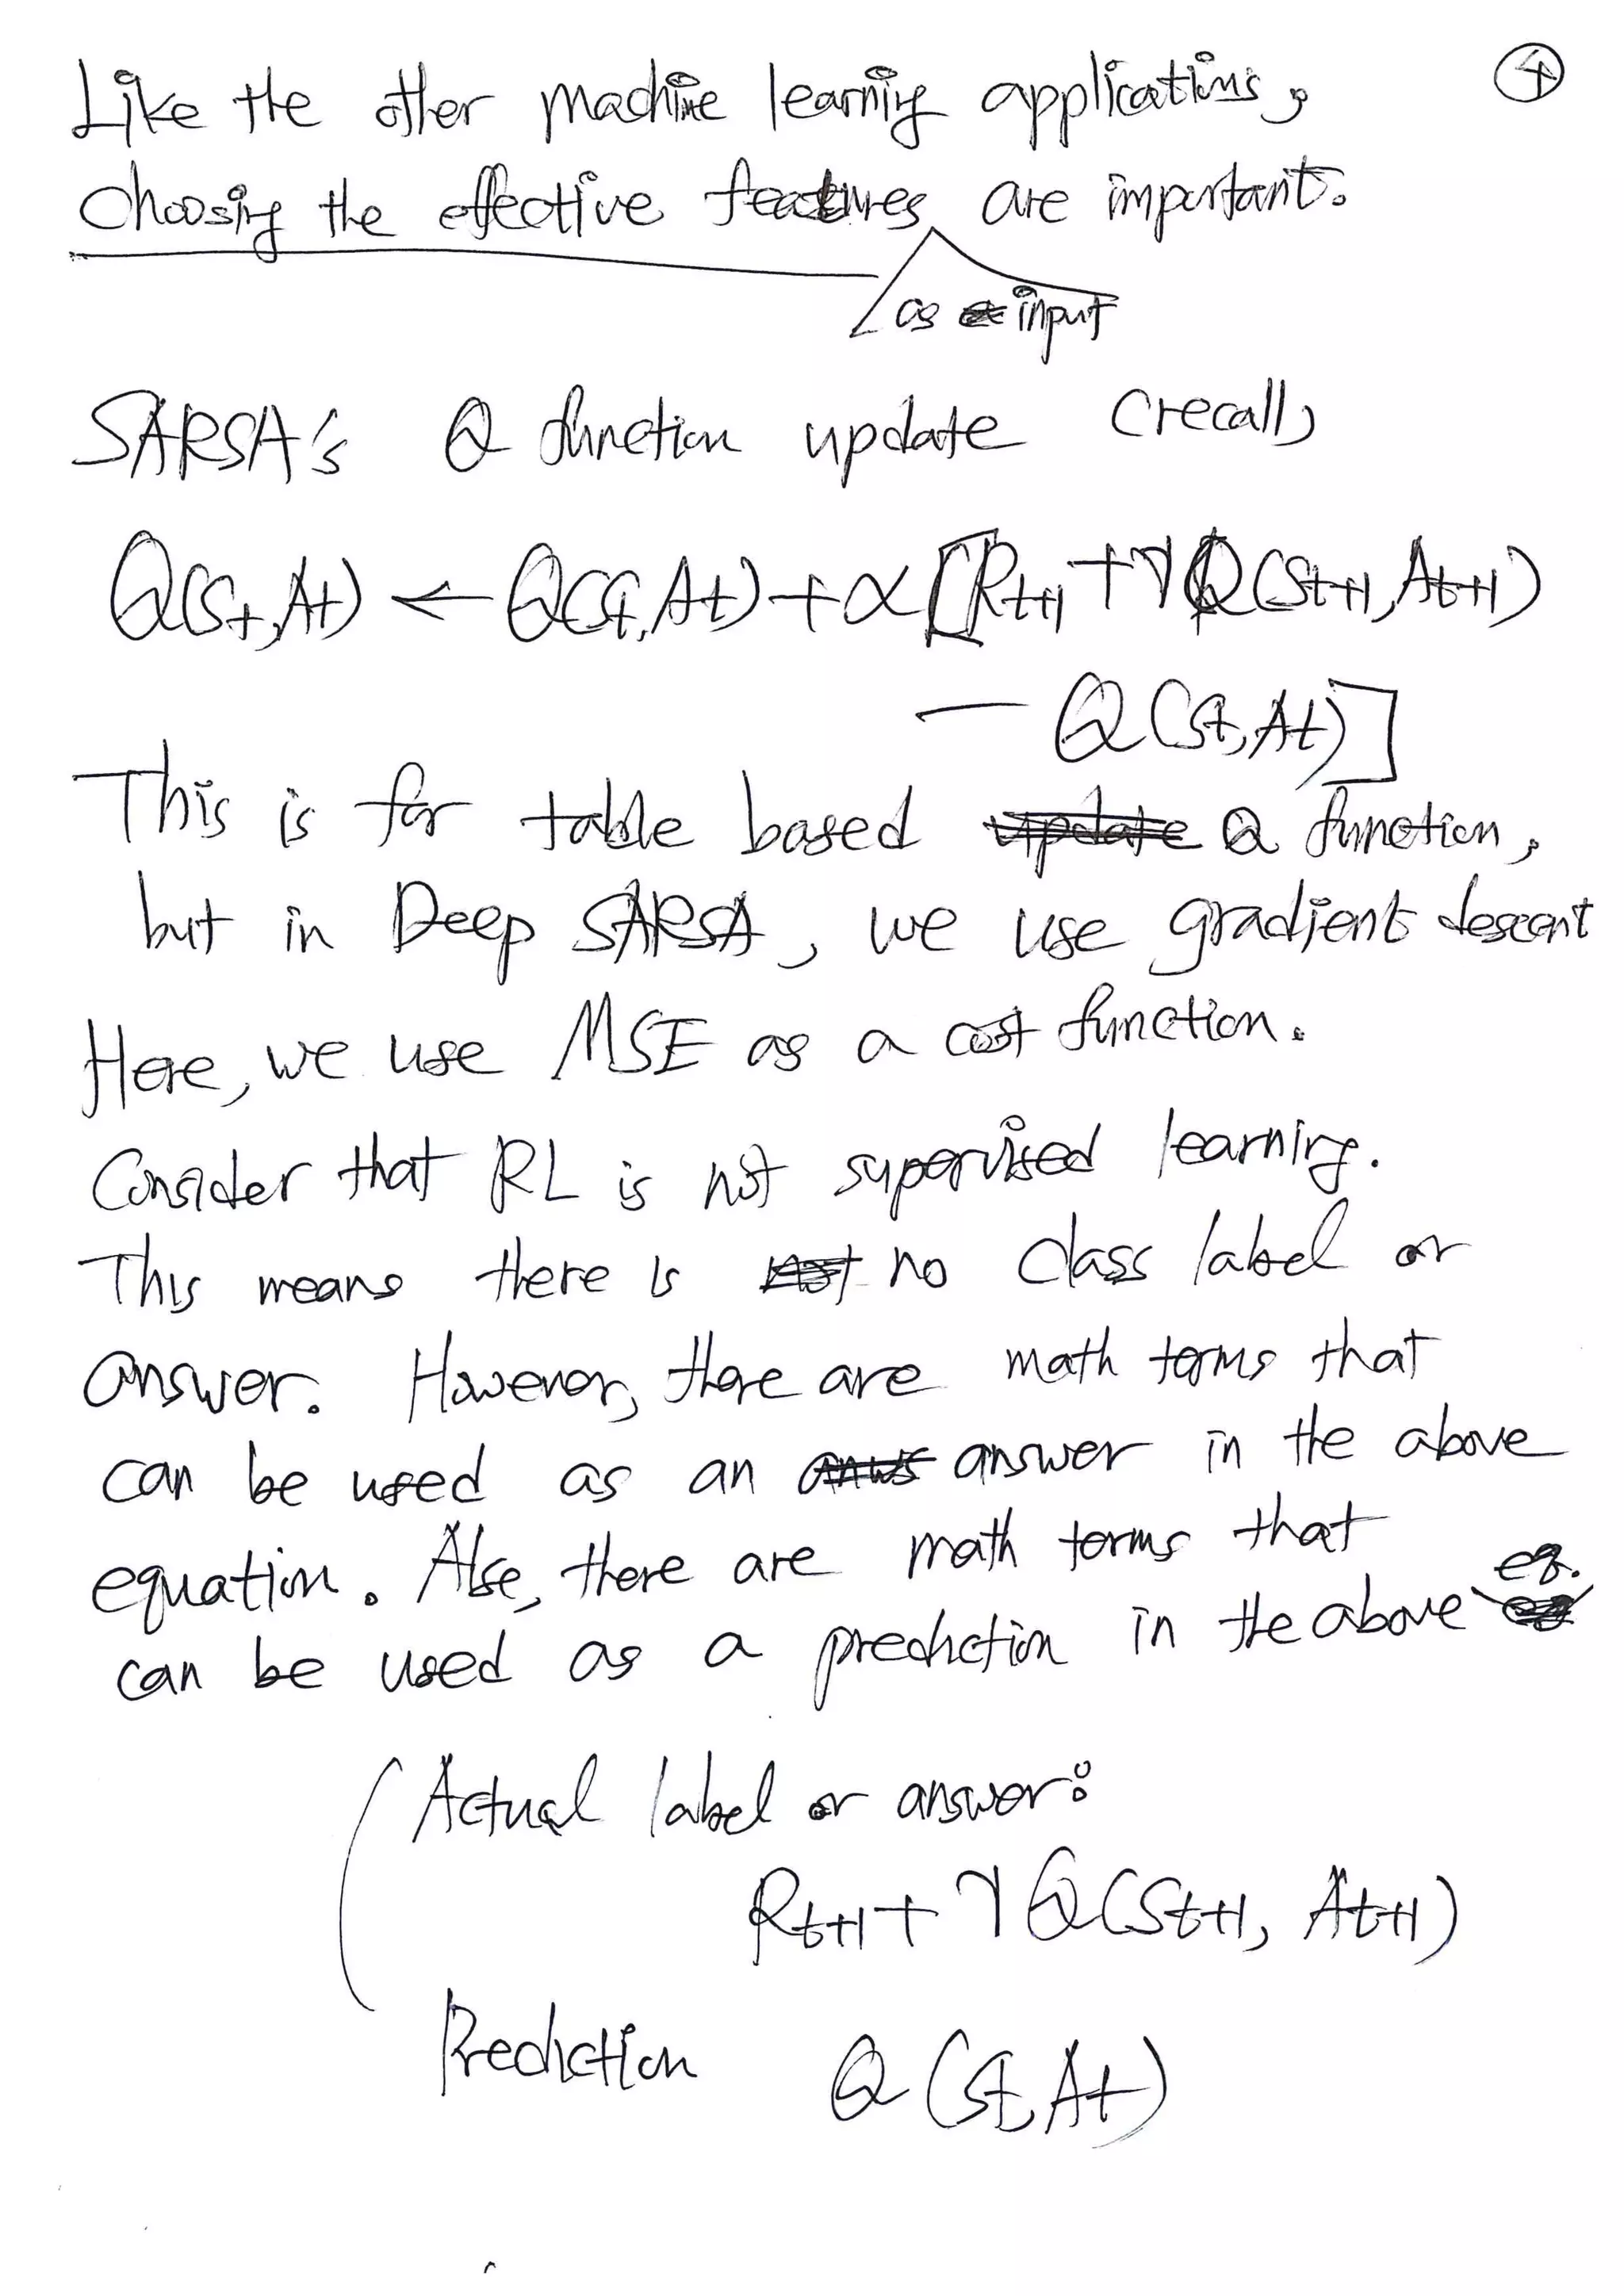 Like the other machine learning applications, ④
choosing the effective features are important.
as input
SARSA's Q function update (recall)
Q(St,At) ← Q(St,At)+α[Rt+1+γQ(St+1,At+1)
- Q(St,At)]
This is for table based Q function,
but in Deep SARSA, we use gradient descent
Here, we use MSE as a cost function.
Consider that RL is not supervised learning.
This means there is no class label or
answer. However, there are math terms that
can be used as an answer in the above
equation. Also, there are math terms that
can be used as a prediction in the above eq.
Actual label or answer:
Rt+1+γQ(St+1, At+1)
Prediction Q(St,At)